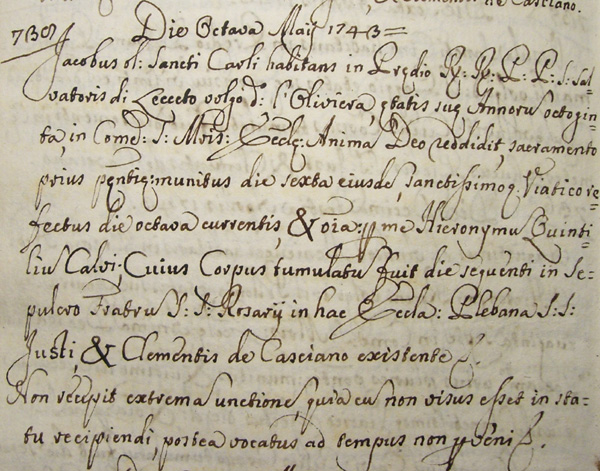 de Casciano.
738
Die Octava Maij 1743=
Jacobus ol: Sancti Caroli habitans in Predio R: R: P: P: S: Sal-
vatoris di Lecceto volgo d: l'Oliviera, ętatis suę Annoru octogin-
ta, in Com: S: Mris: Eccle: Anima Deo reddidit, sacramento
prius pęntię: munitus die sexta eiusde, sanctissimoq. Viatico re-
fectus die octava currentis, & oia: p me Hieronymu Quinti-
liu Calvi; Cuius Corpus tumulatu fuit die sequenti in se-
pulcro Fratru S: S: Rosarij in hac Eccla: Plebana S: S:
Justi, & Clementis de Casciano existente
Non recipit extrema unctione, quia cu non visus esset in sta-
tu recipiendi, postea vocatus ad tempus non pveni